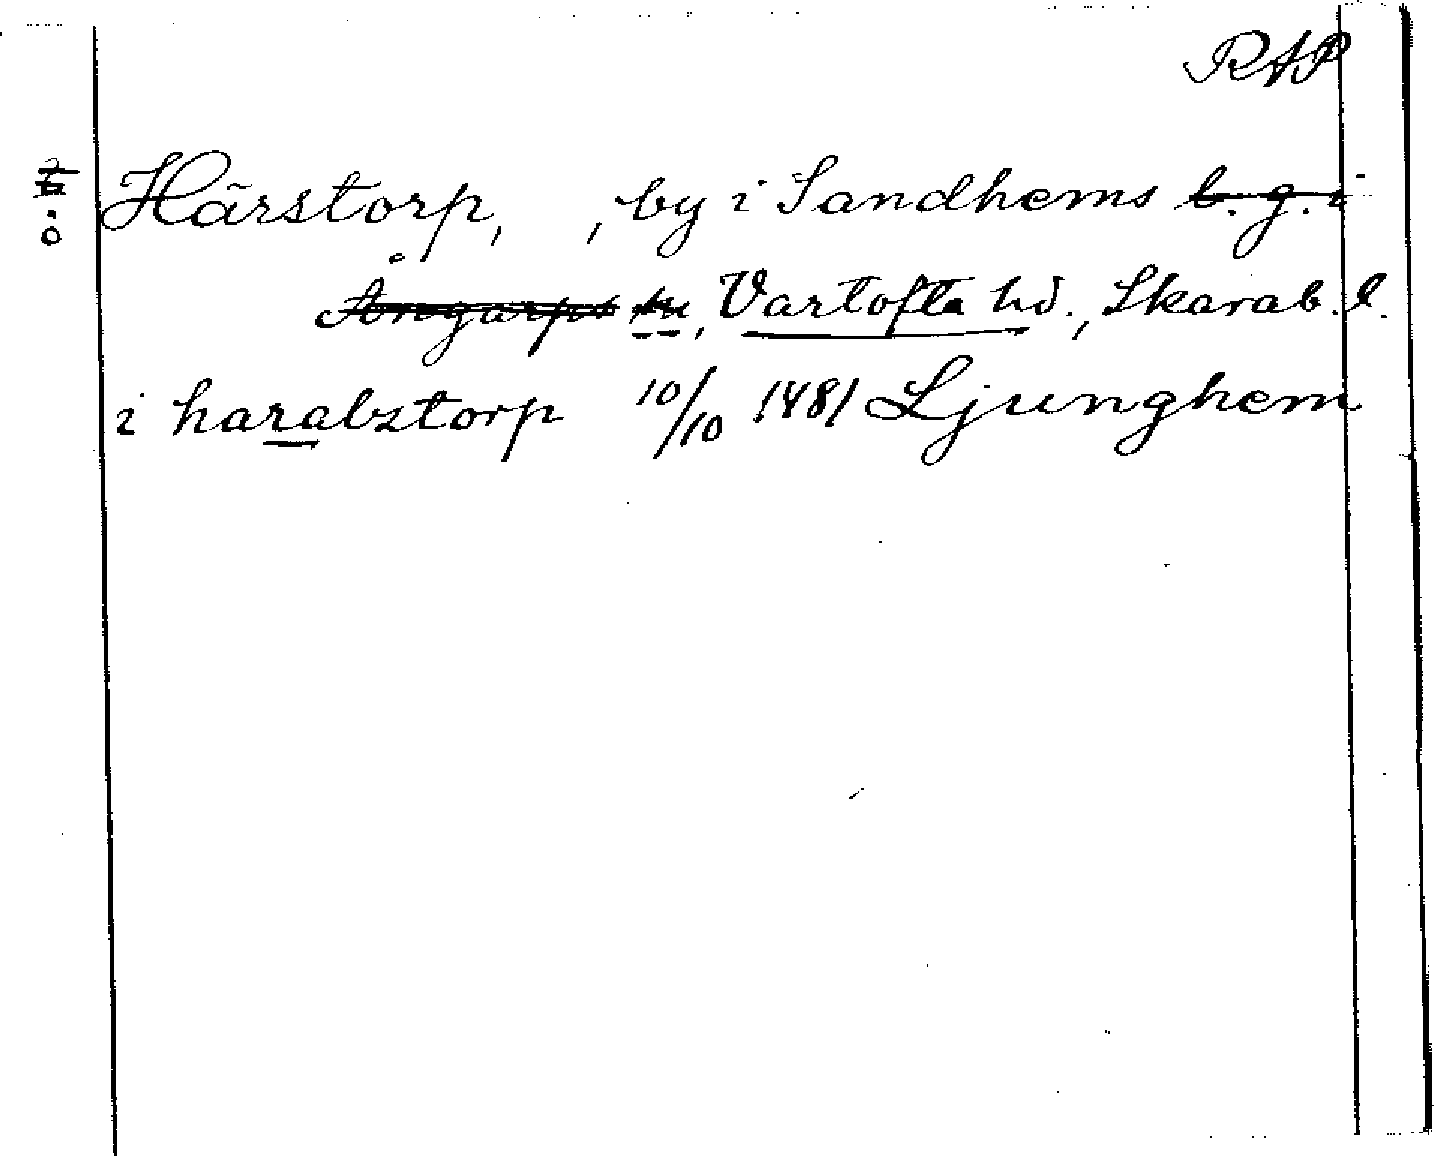 RAP
Härstorp, , by i Sandhems l. g. i
Ångarps sn, Vartofta hd., Skarab. l.
i haralztorp 10/10 1481 Ljunghem